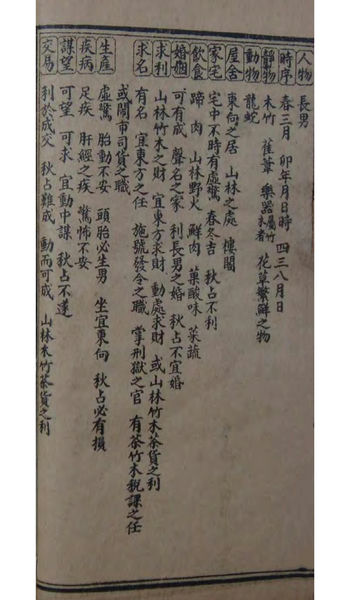 人物 長男
時序 春三月 卯年月日時 四三八月日
靜物 木竹 萑葦 樂器屬竹木者 花草繁鮮之物
動物 龍蛇
屋舍 東向之居 山林之處 樓閣
家宅 宅中不時有虛驚 春冬吉 秋占不利
飲食 蹄 肉 山林野火 鮮肉 菓酸味 菜蔬
婚姻 可有成 聲名之家 利長男之婚 秋占不宜婚
求利 山林竹木之財 宜東方求財 動處求財 或山林竹木茶貨之利
求名 有名 宜東方之任 施號發令之職 掌刑獄之官 有茶竹木稅課之任
或鬧市司貨之職
生產 虛驚 胎動不安 頭胎必生男 坐宜東向 秋占必有損
疾病 足疾 肝經之疾 驚怖不安
謀望 可望 可求 宜動中謀 秋占不遂
交易 利於成交 秋占難成 動而可成 山林木竹茶貨之利